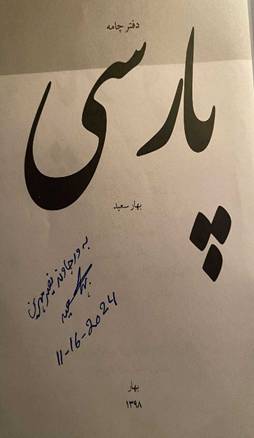 دفتر چامه
پارسی
بهار سعید
به ورجاوند
بهار سعید
11-16-2024
بهار
۱۳۹۸